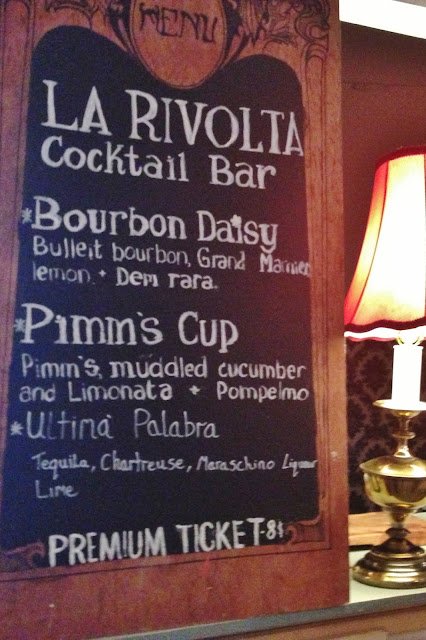 MENU
LA RIVOLTA
Cocktail Bar
*Bourbon Daisy
Bulleit bourbon, Grand Marnier
lemon. + Demrara.
*Pimm's Cup
Pimm's, muddled cucumber
and Limonata + Pompelmo
*Ultina Palabra
Tequila, Chartreuse, Maraschino Liqueur
Lime
PREMIUM TICKET-8$